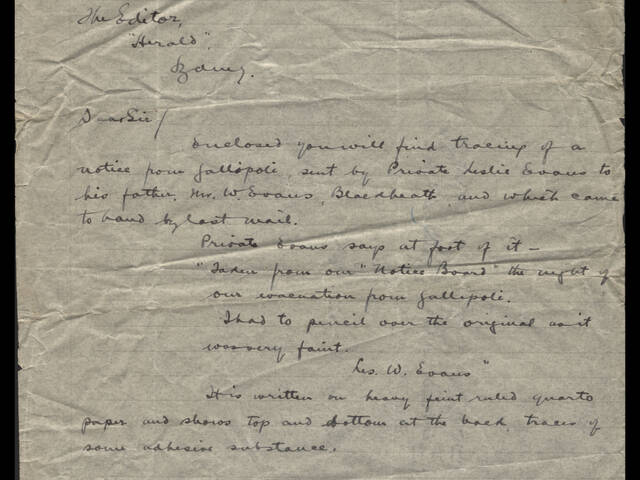 The Editor,
"Herald".
Sydney.
Dear Sir/
Enclosed you will find tracing of a
notice from Gallipoli, sent by Private Leslie Evans to
his father, Mr. W Evans, Blackheath, and which came
to hand by last mail.
Private Evans says at foot of it –
"Taken from our "Notice Board" the night of
our evacuation from Gallipoli.
I had to pencil over the original as it
was very faint.
Les. W. Evans"
It is written on heavy feint ruled quarto
paper and shows top and bottom at the back, traces of
some adhesive substance.